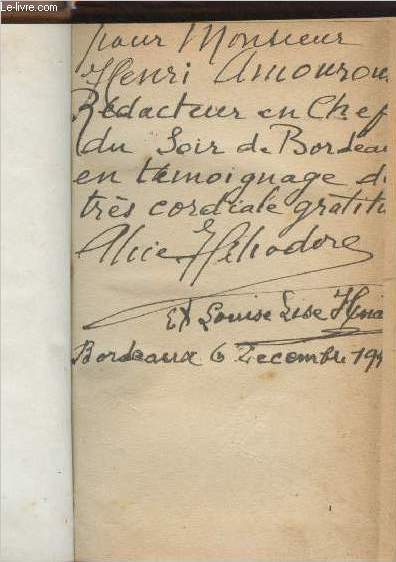 Le-livre.com
pour Monsieur
Henri Amourou
Rédacteur en Chef
du Soir de Bordeau
en témoignage d
très cordiale gratitu
Alice Héliodore
Ex Louise Lise
Bordeaux 6 Decembre 19